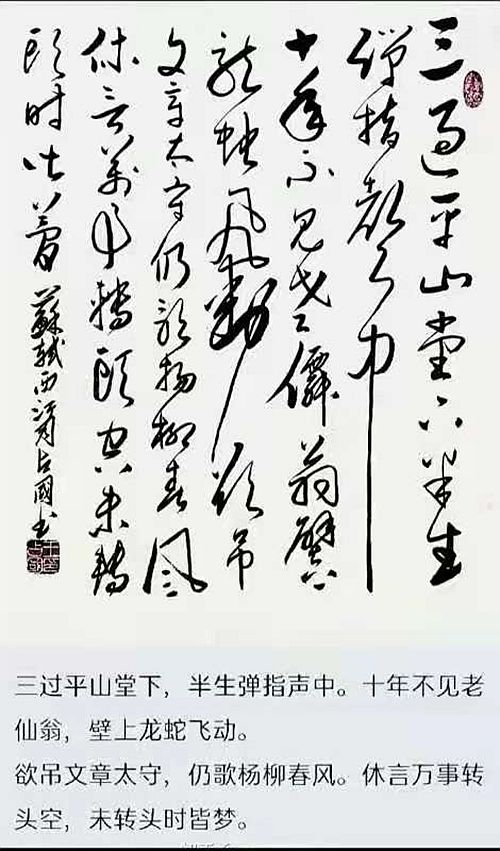 三過平山堂下半生
彈指聲中
十年不見老僊翁壁上
龍蛇飛動欲吊
文章太守仍歌楊柳春風
休言萬事轉頭空未轉
頭時皆夢 蘇軾西江月占國書
三过平山堂下，半生弹指声中。十年不见老
仙翁，壁上龙蛇飞动。
欲吊文章太守，仍歌杨柳春风。休言万事转
头空，未转头时皆梦。